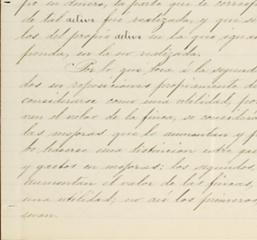 fió en dinero, la parte que le corresp
de tal activo fué realizada, y que se
las del propio activo en la que aque
funda, no la no realizada.
Por lo que toca á la segunda
dos su reposiciones propiamente de
considerarse como una utilidad, por
ven el valor de la finca, se considerá
las mejoras que le aumentan y p
be hacerse una distincion entre gas
y gastos en mejoras: los segundos
aumentan el valor de las fincas,
una utilidad; no así los primeros
suan.